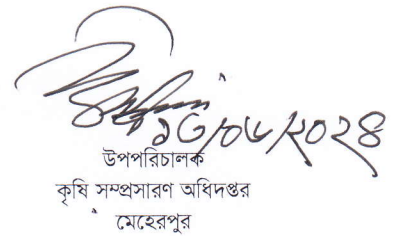 ১৩/০৬/২০২৪
উপপরিচালক
কৃষি সম্প্রসারণ অধিদপ্তর
মেহেরপুর